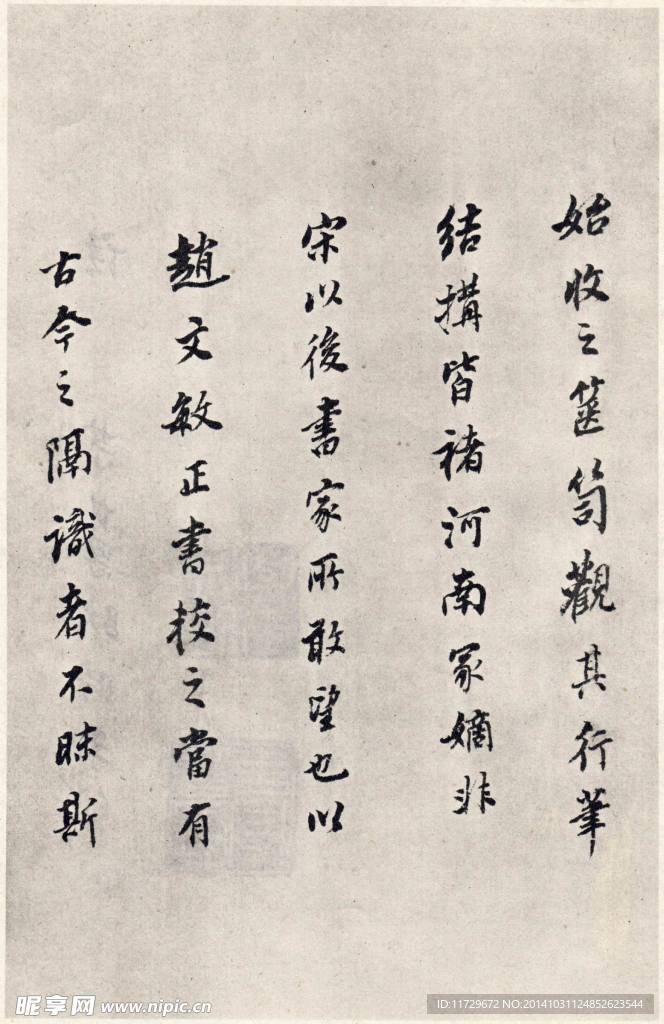 始收之篋笥觀其行筆
結構皆褚河南冢嫡非
宋以後書家所敢望也以
趙文敏正書校之當有
古今之隔識者不昧斯
昵享网 www.nipic.cn
ID:11729672 NO:20141031124852623544